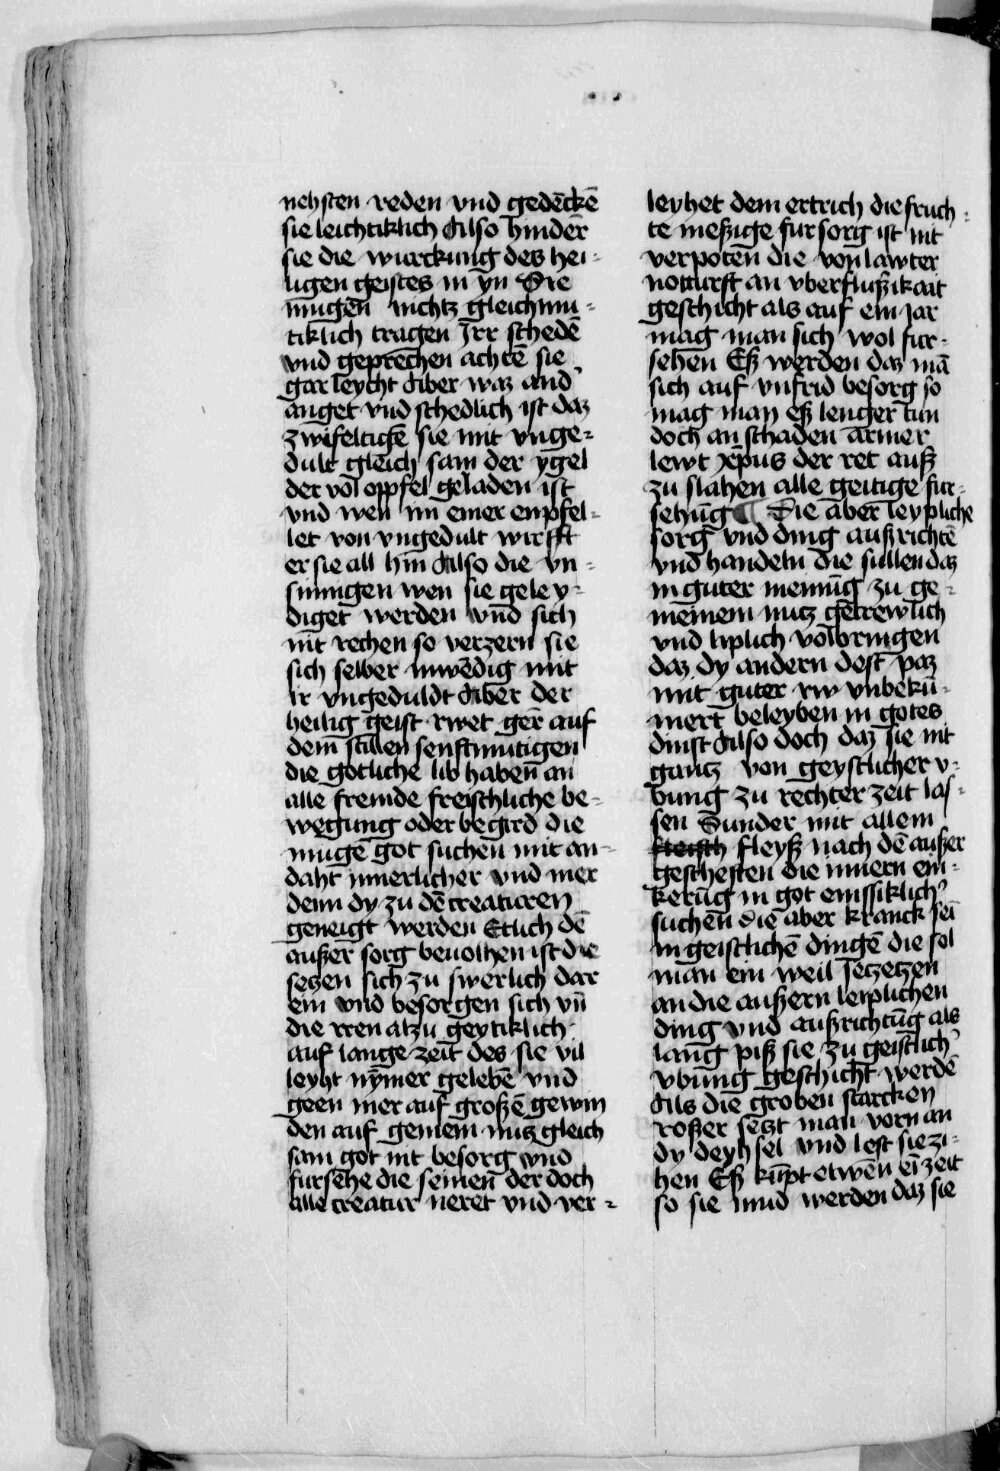 nehsten reden vnd gedēckē
sie leichtiklich Also hindern̄
sie die wurckung des hei-
ligen geistes in yn Sie
mugen̄ nichtz gleichmu-
tiklich tragen Irr schedē
vnd geprechen achtē sie
gar leycht Aber waz and̕
anget vnd schedlich ist daz
zwifeltigē sie mit vnge-
dult gleich sam der ygel
der vol oppfel geladen ist
vnd wen im einer enpfel-
let von vngedult wirfft
er sie all hin Also die vn-
sinnigen wen sie geley-
diget werden vnd sich
nit rechen so verzern sie
sich selber inwēdig mit
ir vngeduldt Aber der
heilig geist rwet ger̄ auf
dem stillen senftmutigen
die gotliche lib haben̄ an
alle fremde freischliche be-
wegung oder begird die
mugē got suchen mit an-
daht innerlicher vnd mer
denn dy zu dē creaturen
geneigt werden Etlich dē
außer̄ sorg beuolhen ist die
setzen sich zu swerlich dar
ein vnd besorgen sich vn̄
die iren alzu geytiklich
auf lange zeit des sie vil
leyht nȳmer gelebē vnd
geen mer auf großē gewin
den auf gemein nutz gleich
sam got nit besorg vnd
fursehe die seinen̄ der doch
alle creatur neret vnd ver-
leyhet dem ertrich die fruch-
te meßige fursorg ist nit
verpoten̄ die von lawter
notturft an vberflußikait
geschicht als auf ein jar
mag man sich wol fur-
sehen Eß werden daz mā
sich auf vnfrid besorg so
mag man eß lenger tun
doch an schaden armer
lewt xp̄us der ret auß
zu slahen alle geitige fur-
sehūg ¶ Die aber leypliche
sorg vnd ding außrichtē
vnd handeln die sullen daz
in guter meinūg zu ge-
meinem nutz getrewlich
vnd liplich volbringen
daz dy andern dest paz
mit guter rw vnbekū-
mert beleyben in gotes
dinst Also doch daz sie nit
gantz von geystlicher v-
bung zu rechter zeit las-
sen Sunder mit allem
fleisch fleyß nach dē außer
gescheften die innern ein-
kerūg in got emssiklich̕
suchen̄ die aber kranck sei
in geistlichē dingē die sol
man ein weil setzetzen
an die außern leiplichen
ding vnd außrichtūg als
lang piß sie zu geistlich̕
vbūng geschicht werdē
Als die groben starcken
roßer setzt man vorn an
dy deyhsel vnd lest sie zi-
hen Eß kūpt etwen ei zeit
so sie mud werden daz sie